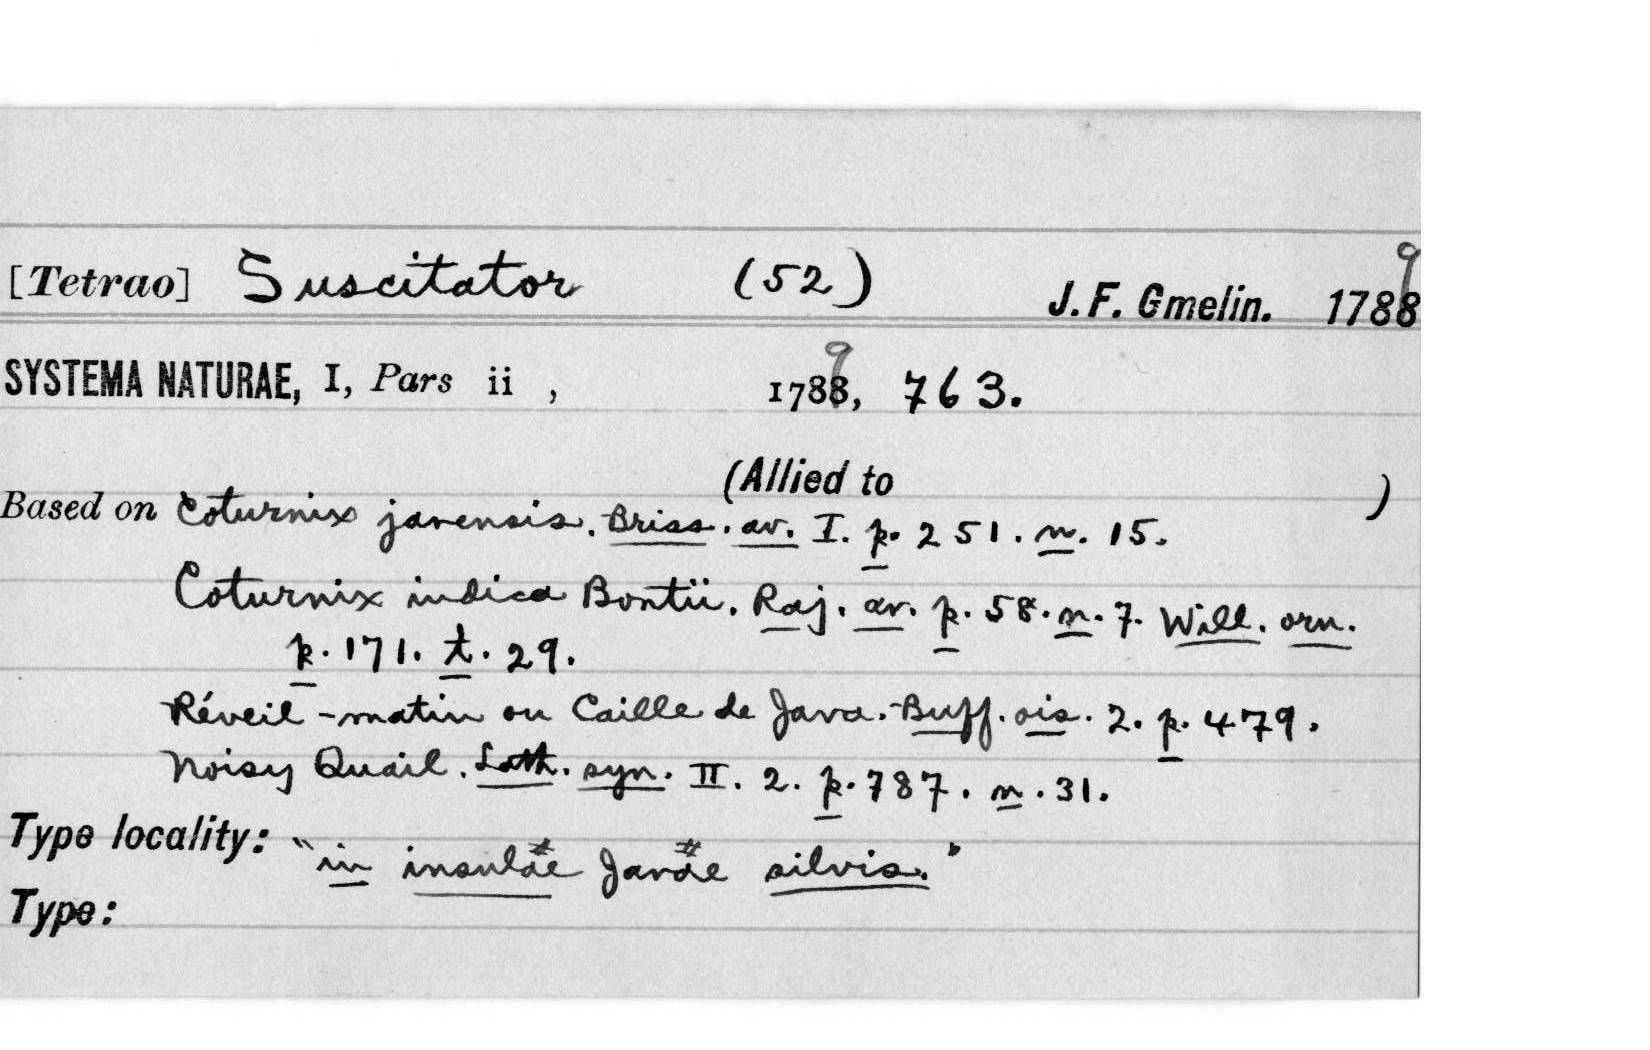 [Tetrao] Suscitator (52) J. F. Gmelin. 1789
SYSTEMA NATURAE, I, Pars ii , 1789, 763.
(Allied to )
Based on Coturnix javensis. Briss. av. I. p. 251. n. 15.
Coturnix indica Bontii. Raj. av. p. 58. n. 7. Will. orn.
p. 171. t. 29.
Réveil-matin ou Caille de Java. Buff. ois. 2. p. 479.
Noisy Quail. Lath. syn. II. 2. p. 787. n. 31.
Type locality: "in insulae Javae silvis."
Type: